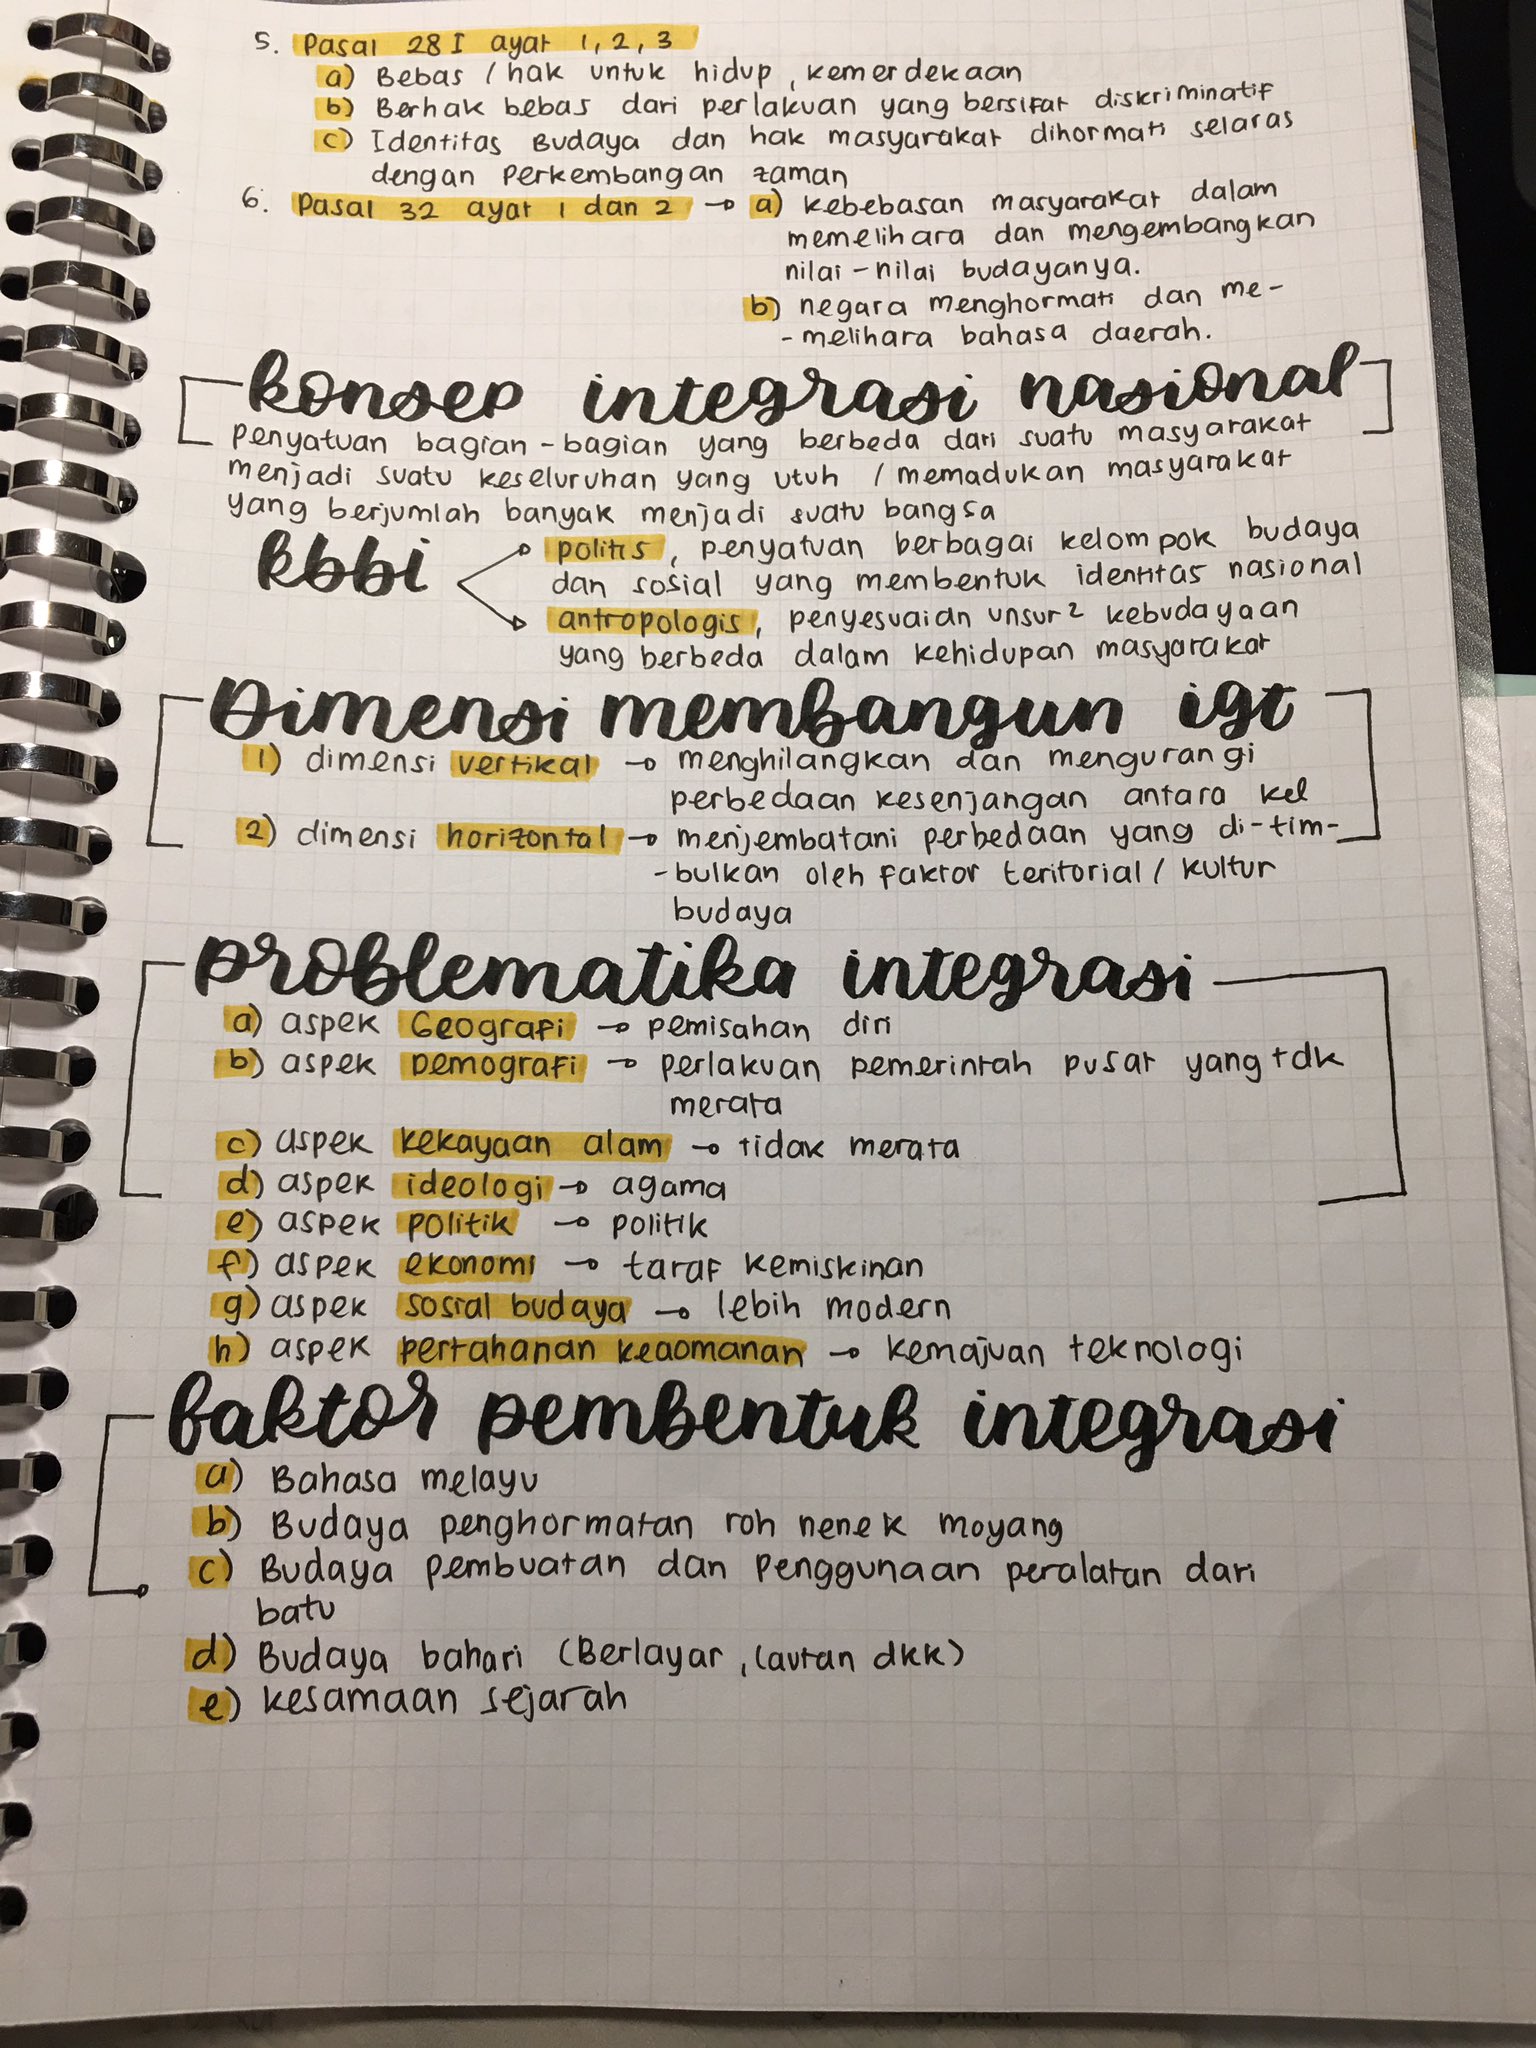 5. Pasal 28 I ayat 1, 2, 3
a) Bebas / hak untuk hidup, kemerdekaan
b) Berhak bebas dari perlakuan yang bersifat diskriminatif
c) Identitas Budaya dan hak masyarakat dihormati selaras
dengan perkembangan zaman
6. Pasal 32 ayat 1 dan 2 → a) kebebasan masyarakat dalam
memelihara dan mengembangkan
nilai-nilai budayanya.
b) negara menghormati dan me-
-melihara bahasa daerah.
konsep integrasi nasional
penyatuan bagian-bagian yang berbeda dari suatu masyarakat
menjadi suatu keseluruhan yang utuh / memadukan masyarakat
yang berjumlah banyak menjadi suatu bangsa
kbbi
politis, penyatuan berbagai kelompok budaya
dan sosial yang membentuk identitas nasional
antropologis, penyesuaian unsur2 kebudayaan
yang berbeda dalam kehidupan masyarakat
Dimensi membangun igt
1) dimensi vertikal → menghilangkan dan mengurangi
perbedaan kesenjangan antara kel
2) dimensi horizontal → menjembatani perbedaan yang di-tim-
-bulkan oleh faktor teritorial / kultur
budaya
problematika integrasi
a) aspek Geografi → pemisahan diri
b) aspek Demografi → perlakuan pemerintah pusat yang tdk
merata
c) aspek kekayaan alam → tidak merata
d) aspek ideologi → agama
e) aspek politik → politik
f) aspek ekonomi → taraf kemiskinan
g) aspek sosial budaya → lebih modern
h) aspek pertahanan keaomanan → kemajuan teknologi
faktor pembentuk integrasi
a) Bahasa melayu
b) Budaya penghormatan roh nenek moyang
c) Budaya pembuatan dan penggunaan peralatan dari
batu
d) Budaya bahari (Berlayar, lautan dkk)
e) kesamaan sejarah